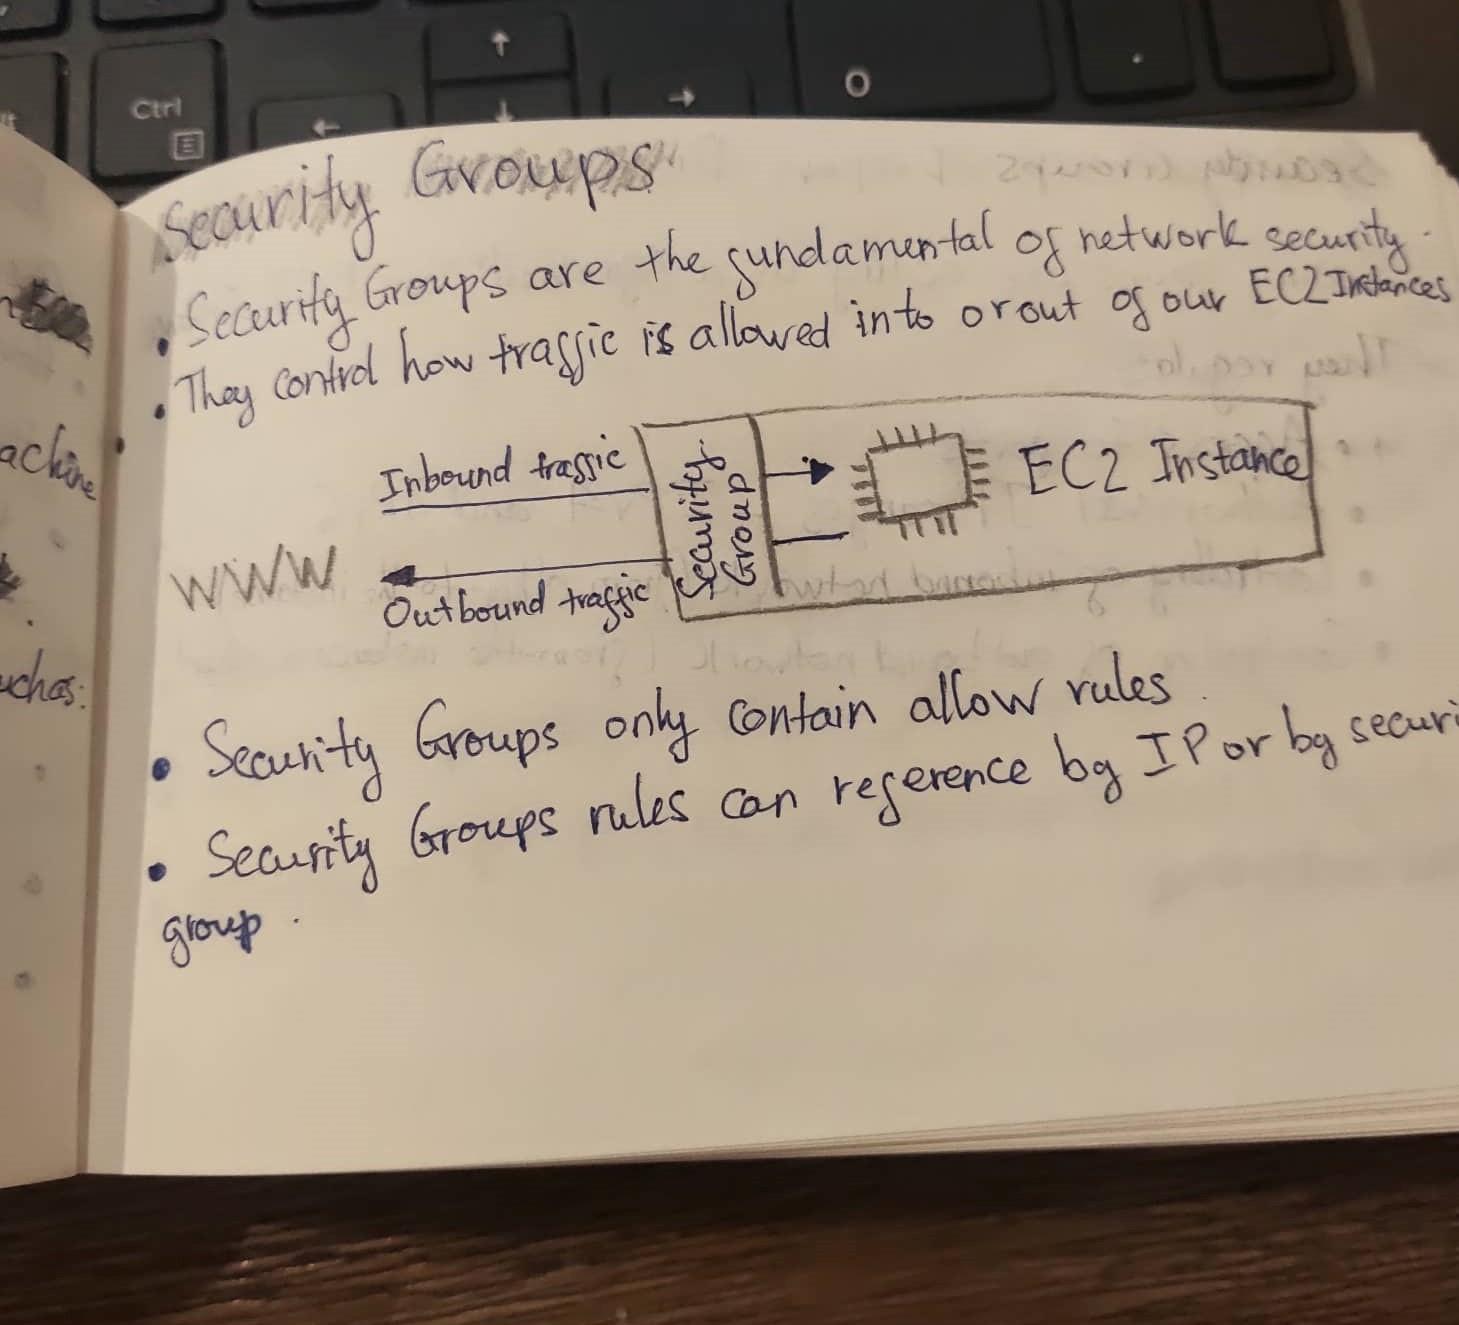 Ctrl
Security Groups
• Security Groups are the fundamental of network security.
• They control how traffic is allowed into or out of our EC2 Instances
Inbound traffic
Security Group
EC2 Instance
WWW
Outbound traffic
• Security Groups only contain allow rules.
• Security Groups rules can reference by IP or by securi
group.
achine
uchas: